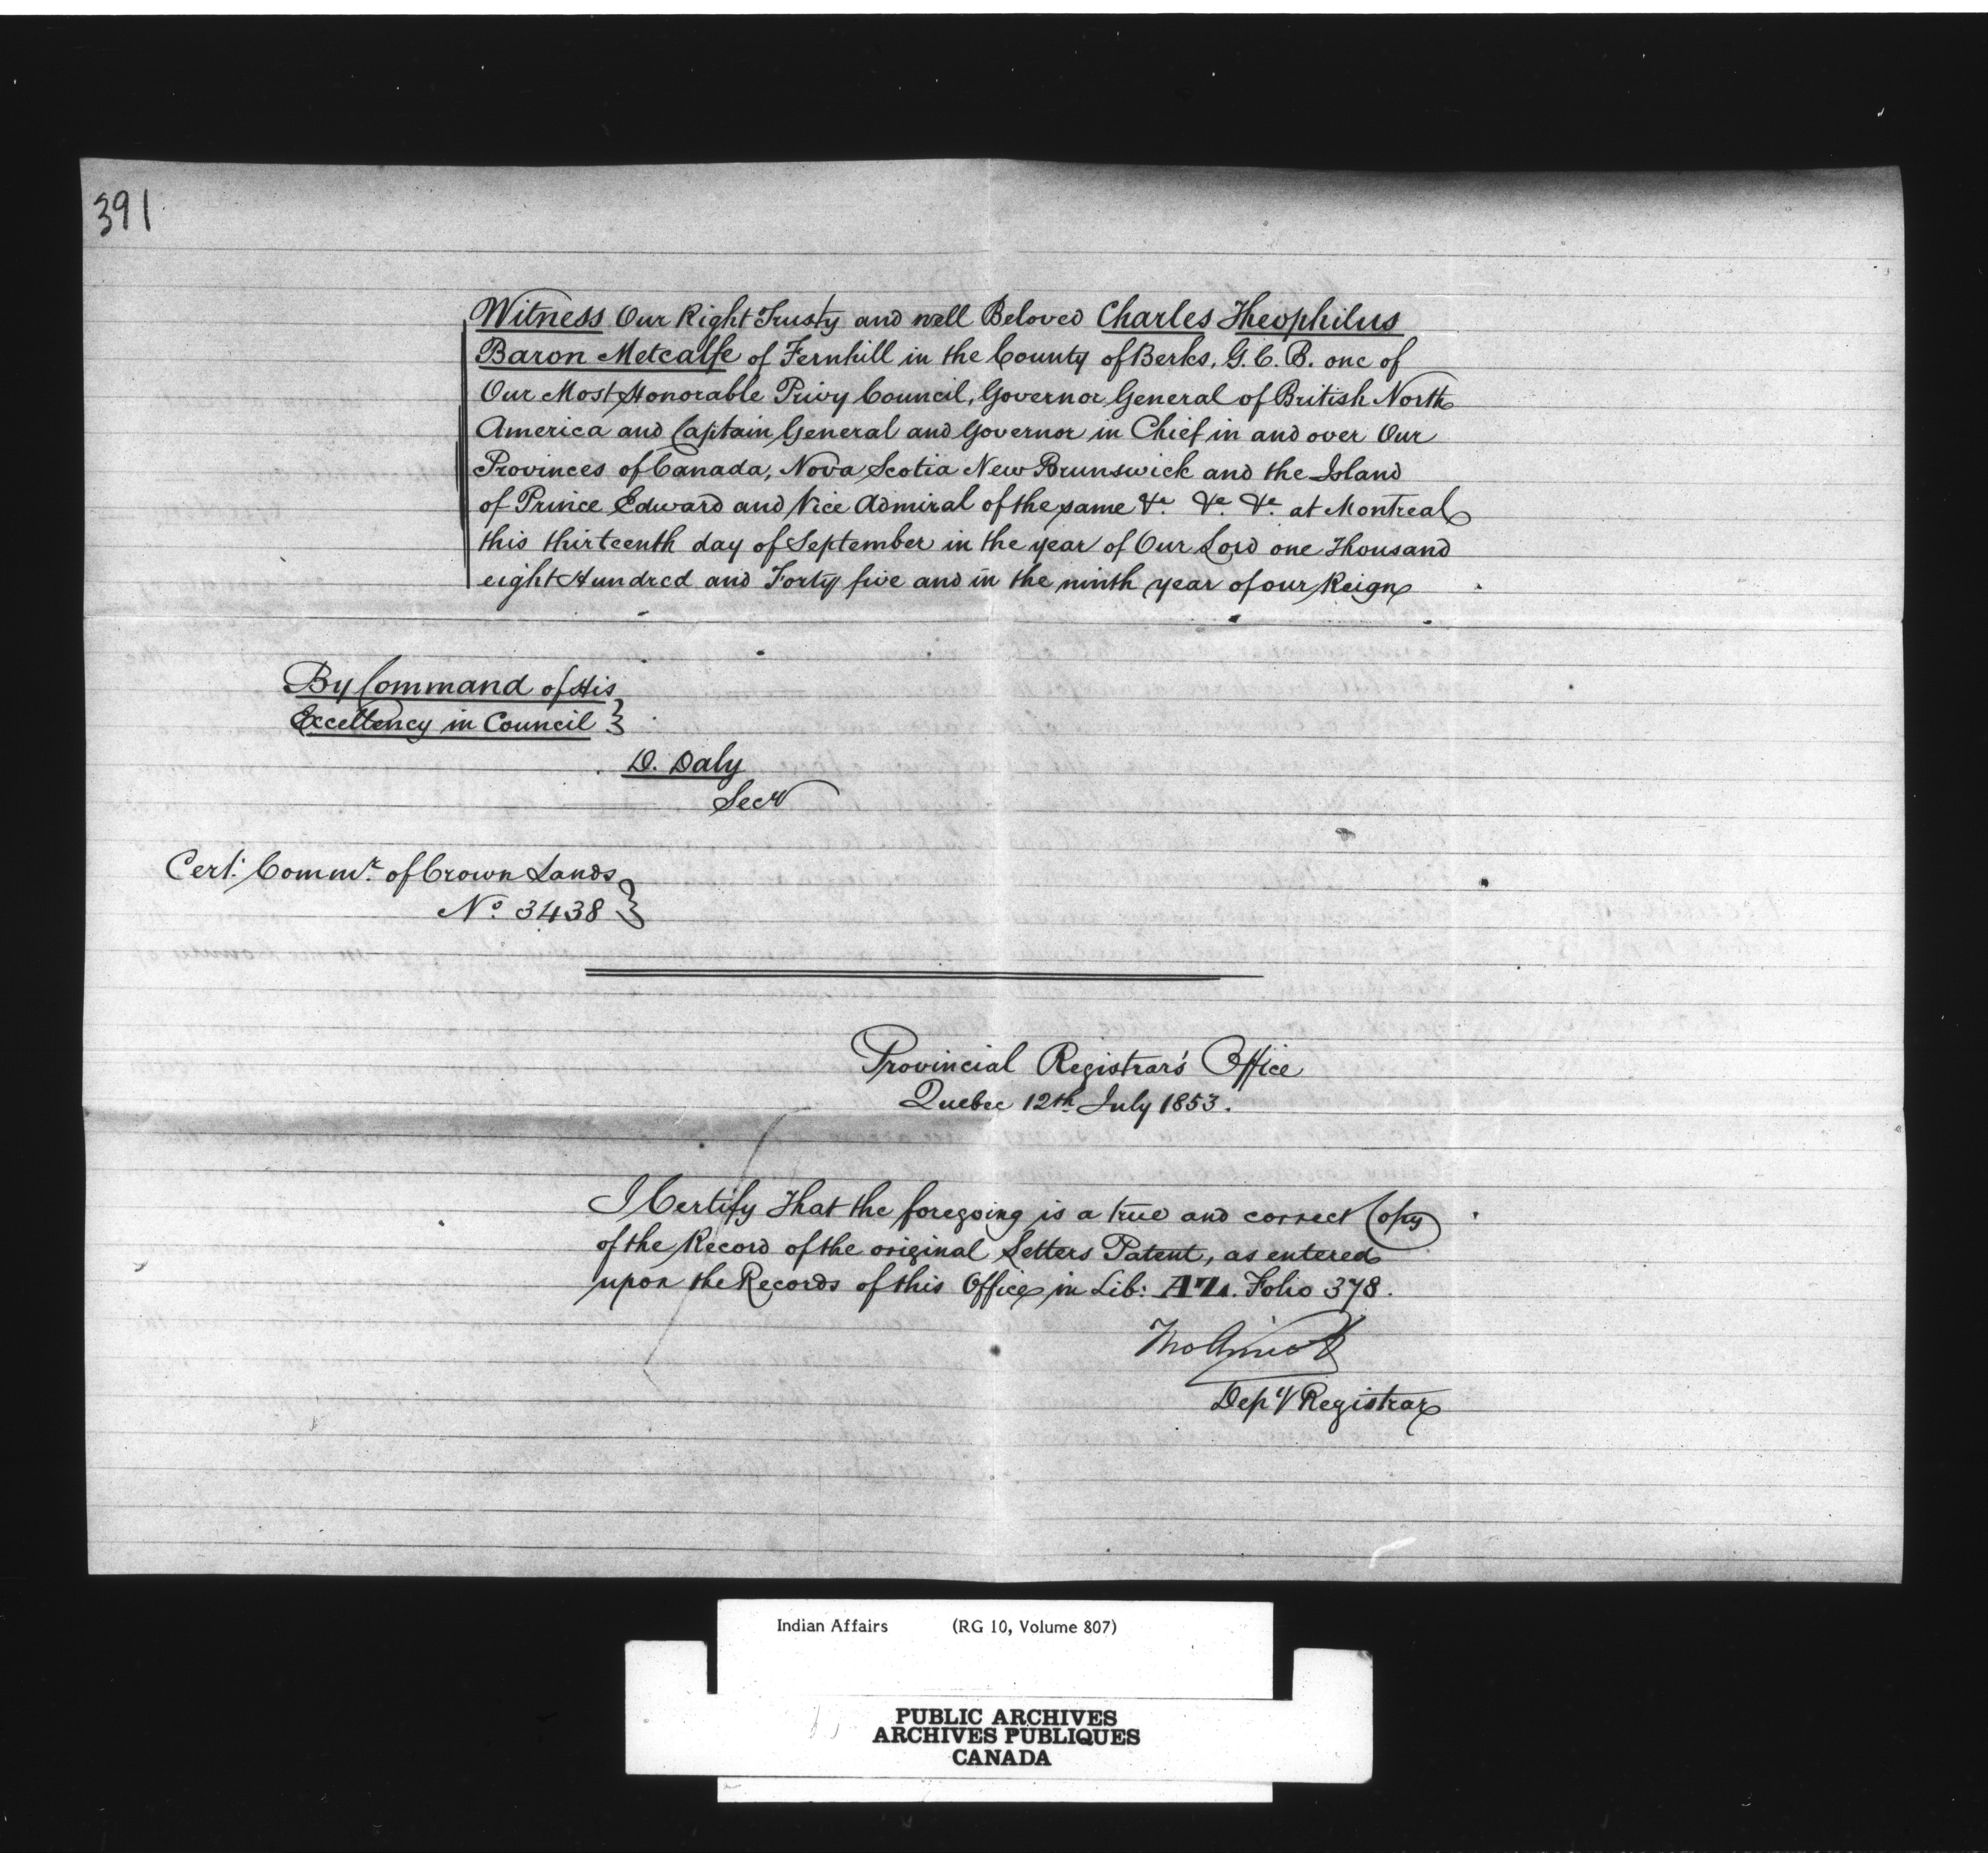 391
Witness Our Right Trusty and well Beloved Charles Theophilus
Baron Metcalfe of Fernhill in the County of Berks, G.C.B. one of
Our Most Honorable Privy Council, Governor General of British North
America and Captain General and Governor in Chief in and over Our
Provinces of Canada, Nova Scotia New Brunswick and the Island
of Prince Edward and Vice Admiral of the same &c. &c. &c. at Montreal
this thirteenth day of September in the year of Our Lord one Thousand
eight Hundred and Forty five and in the ninth year of our Reign
By Command of His
Excellency in Council
D. Daly
Secy
Cert. Commr. of Crown Lands
No. 3438
Provincial Registrar's Office
Quebec 12th July 1853.
I Certify That the foregoing is a true and correct Copy
of the Record of the original Letters Patent, as entered
upon the Records of this Office in Lib: AZ. Folio 378.
Tho Amiot
Depy Registrar
Indian Affairs (RG 10, Volume 807)
PUBLIC ARCHIVES
ARCHIVES PUBLIQUES
CANADA